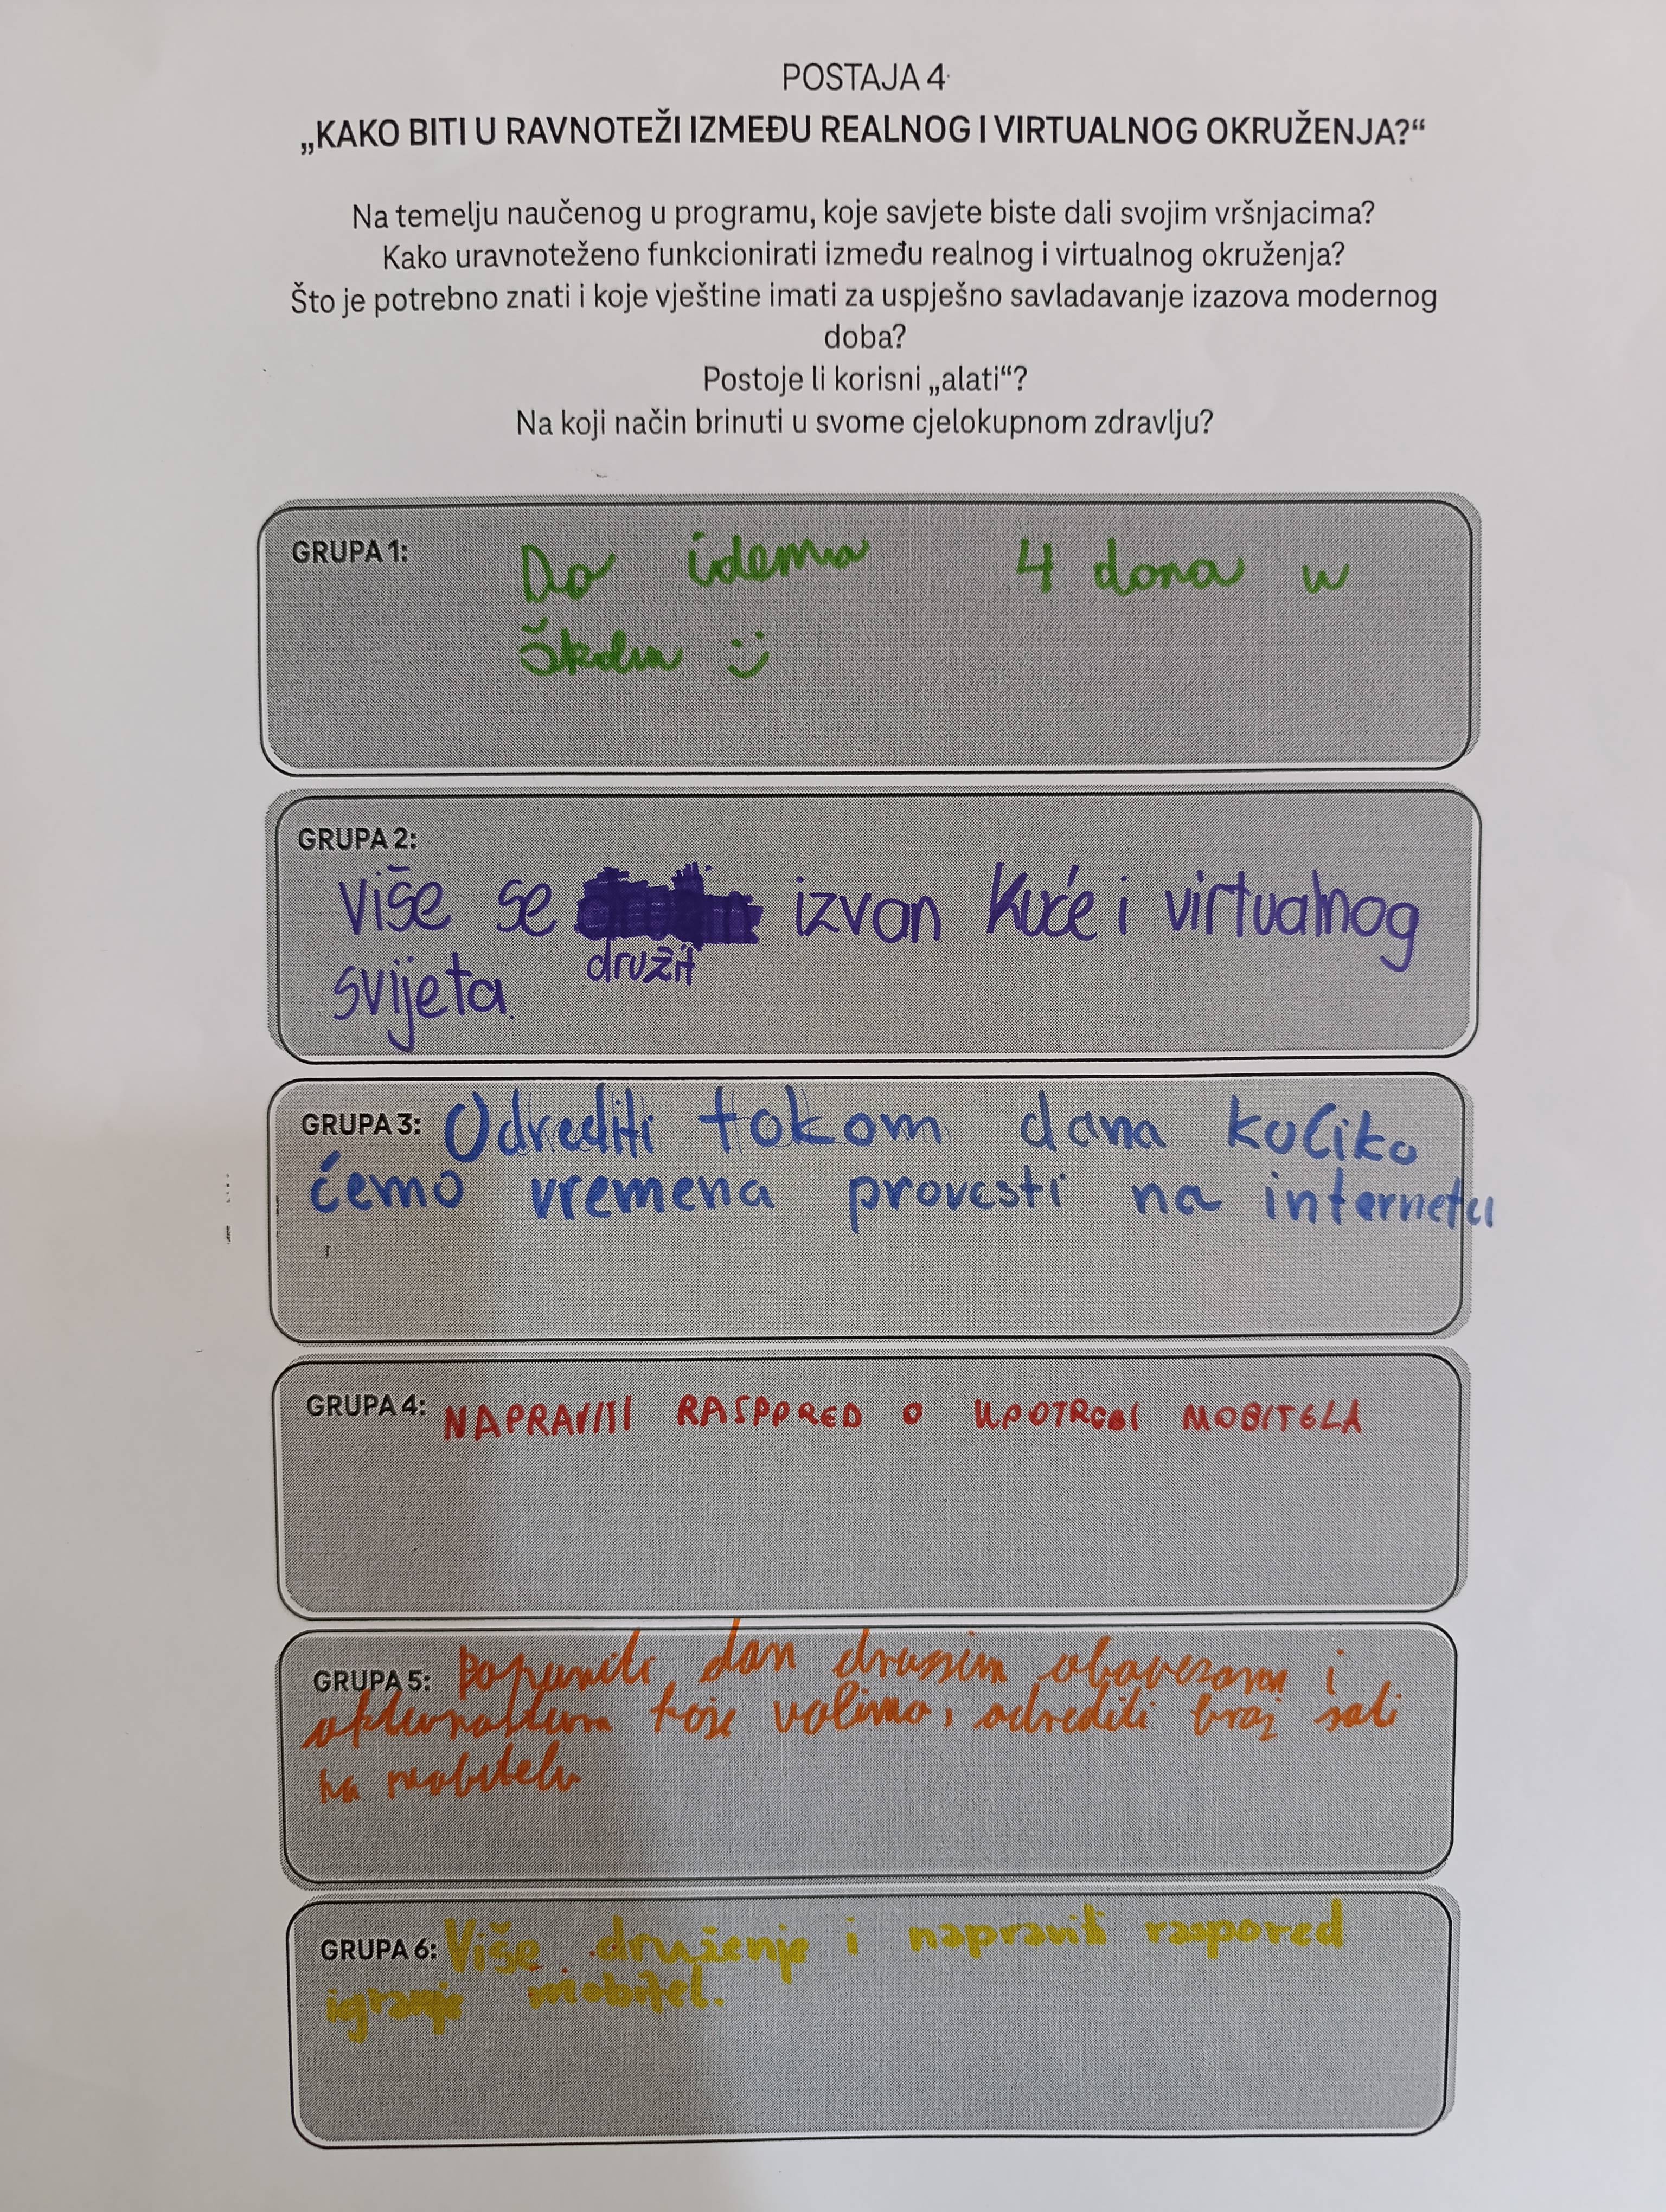 POSTAJA 4
„KAKO BITI U RAVNOTEŽI IZMEĐU REALNOG I VIRTUALNOG OKRUŽENJA?“
Na temelju naučenog u programu, koje savjete biste dali svojim vršnjacima?
Kako uravnoteženo funkcionirati između realnog i virtualnog okruženja?
Što je potrebno znati i koje vještine imati za uspješno savladavanje izazova modernog
doba?
Postoje li korisni „alati“?
Na koji način brinuti u svome cjelokupnom zdravlju?
GRUPA 1: Da idemo 4 dana u
školu :)
GRUPA 2:
Više se izvan kuće i virtualnog
družit
svijeta.
GRUPA 3: Odrediti tokom dana koliko
ćemo vremena provesti na internetu
GRUPA 4: NAPRAVITI RASPORED O UPOTREBI MOBITELA
GRUPA 5: Popuniti dan drugim obavezama i
aktivnostima koje volimo, odrediti broj sati
na mobitelu
GRUPA 6: Više druženje i napravit raspored
igranje mobitel.